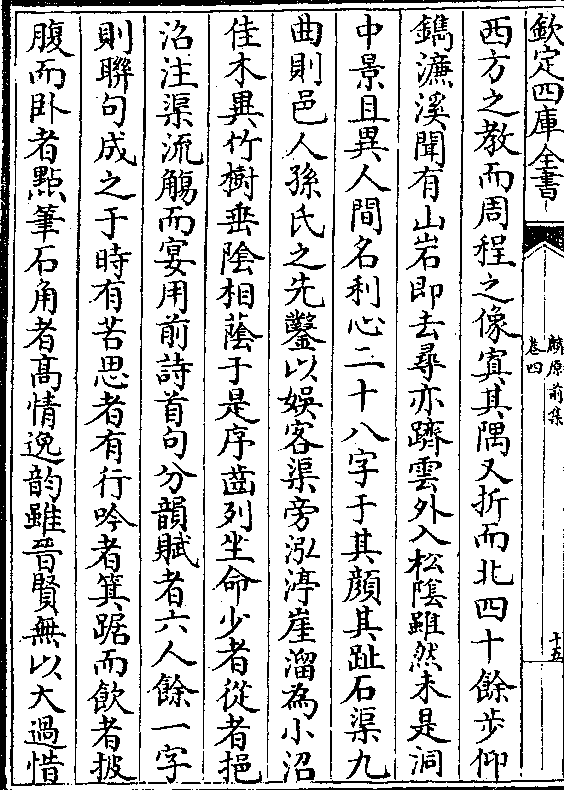 欽定四庫全書
麟原前集
卷四
十五
西方之教而周程之像寘其隅又折而北四十餘步仰
鐫濂溪聞有山岩即去尋亦躋雲外入松陰雖然未是洞
中景且異人間名利心二十八字于其顔其趾石渠九
曲則邑人孫氏之先鑿以娛客渠旁泓渟崖溜為小沼
佳木異竹樹垂陰相蔭于是序齒列坐命少者從者挹
沼注渠流觴而宴用前詩首句分韻賦者六人餘一字
則聯句成之于時有苦思者有行吟者箕踞而飲者披
腹而卧者㸃筆石角者髙情逸韵雖晉賢無以大過惜